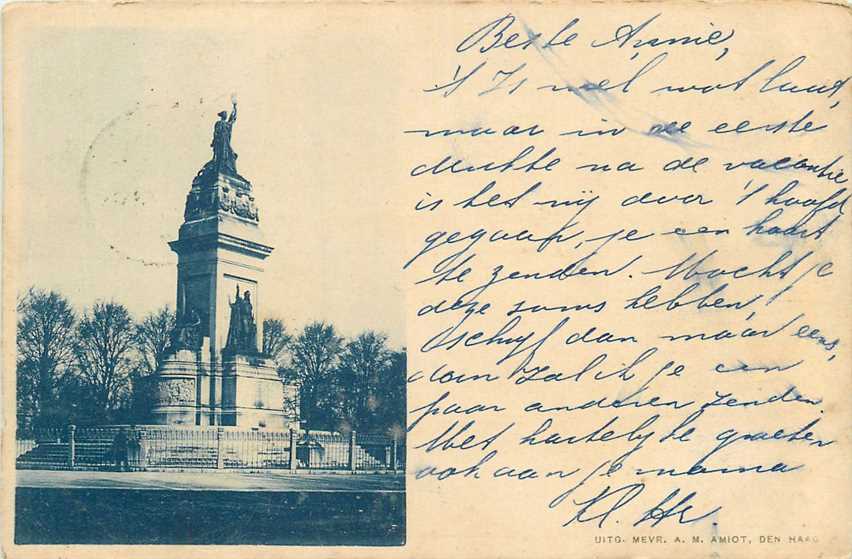 Beste Annie,
't Is wel wat laat,
maar in de eerste
drukte na de vacantie
is het mij door 't hoofd
gegaan, je een kaart
te zenden. Mocht je
deze soms hebben,
schrijf dan maar eens,
dan zal ik je een
paar anderen zenden.
Met hartelijke groeten
ook aan je mama
UITG. MEVR. A. M. AMIOT, DEN HAAG